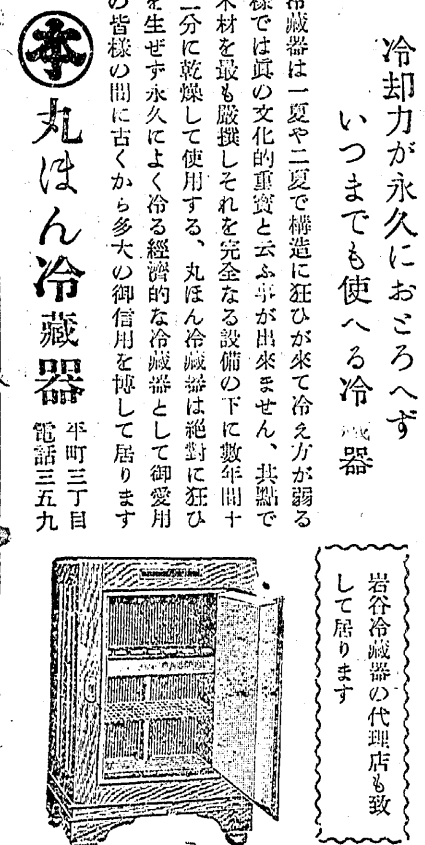 冷却力が永久におとろへず
いつまでも使へる冷藏器
冷藏器は一夏や二夏で構造に狂ひが來て冷え方が弱る
樣では眞の文化的重寶と云ふ事が出來ません、其點で
木材を最も嚴撰しそれを完全なる設備の下に數年間十
二分に乾燥して使用する、丸ほん冷藏器は絶對に狂ひ
を生ぜず永久によく冷る經濟的な冷藏器として御愛用
の皆樣の間に古くから多大の御信用を博して居ります
本
丸ほん冷藏器
平町三丁目
電話三五九
岩谷冷藏器の代理店も致
して居ります